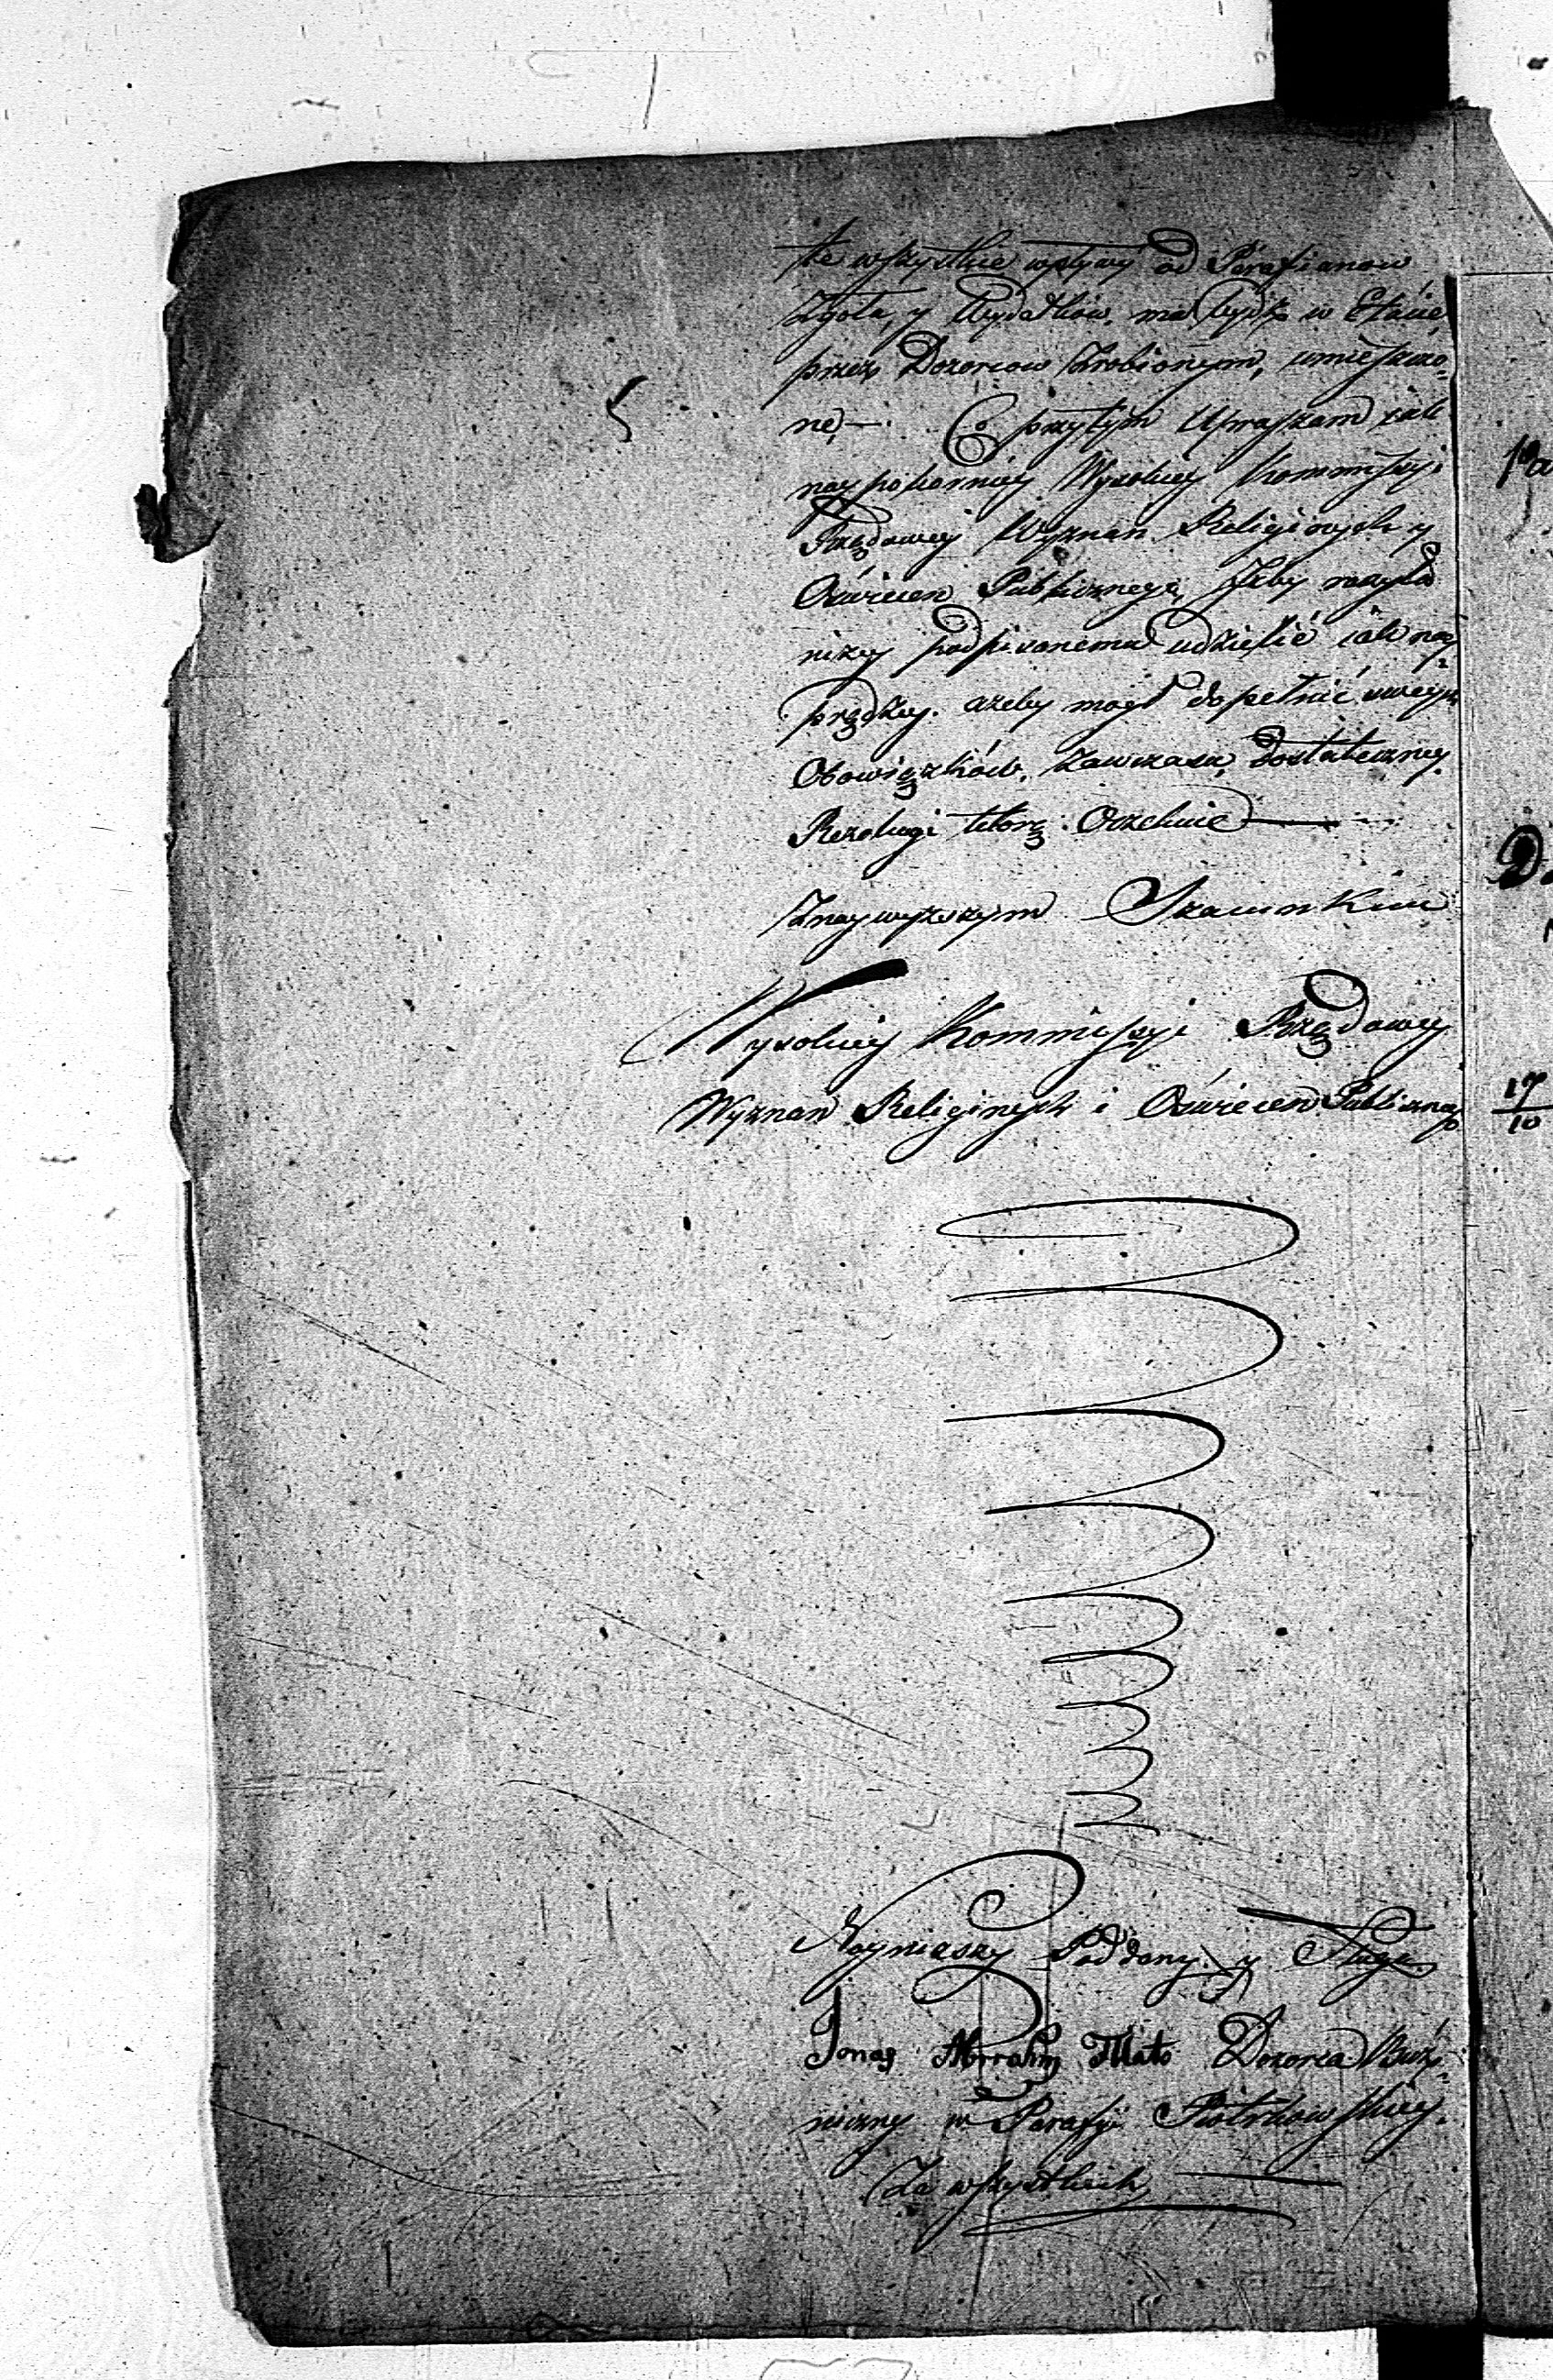 te wszystkie wpływy od Parafianow
Zgoła, y Wydatków, ma bydź w Etacie
przez Dozorcow Zrobionym, umieszczo-
ne,— Co przytym Upraszam iak
naypokorniey Wysokiey Kommissyi
Rządowey Wyznań Religinych y
Oświecen Publicznego, Żeby raczyła
niżey podpisanemu udzielić iak nay-
prędzey. ażeby mógł dopełnić swoych
Obowiązków, zawczasu, dostateczney.
Rezolucyi którą. Oczekuie —
Znaywyższym Szacunkiem
Wysokiey Kommissyi Rządowey
Wyznań Religinych i Oświecen Publicznego
Nayniższy Poddany y Sługa
Jonas Abrahm Mato Dozorca Bóż-
niczny w Parafyi Piotrkowskiey.
Za wszystkich
D
17
10